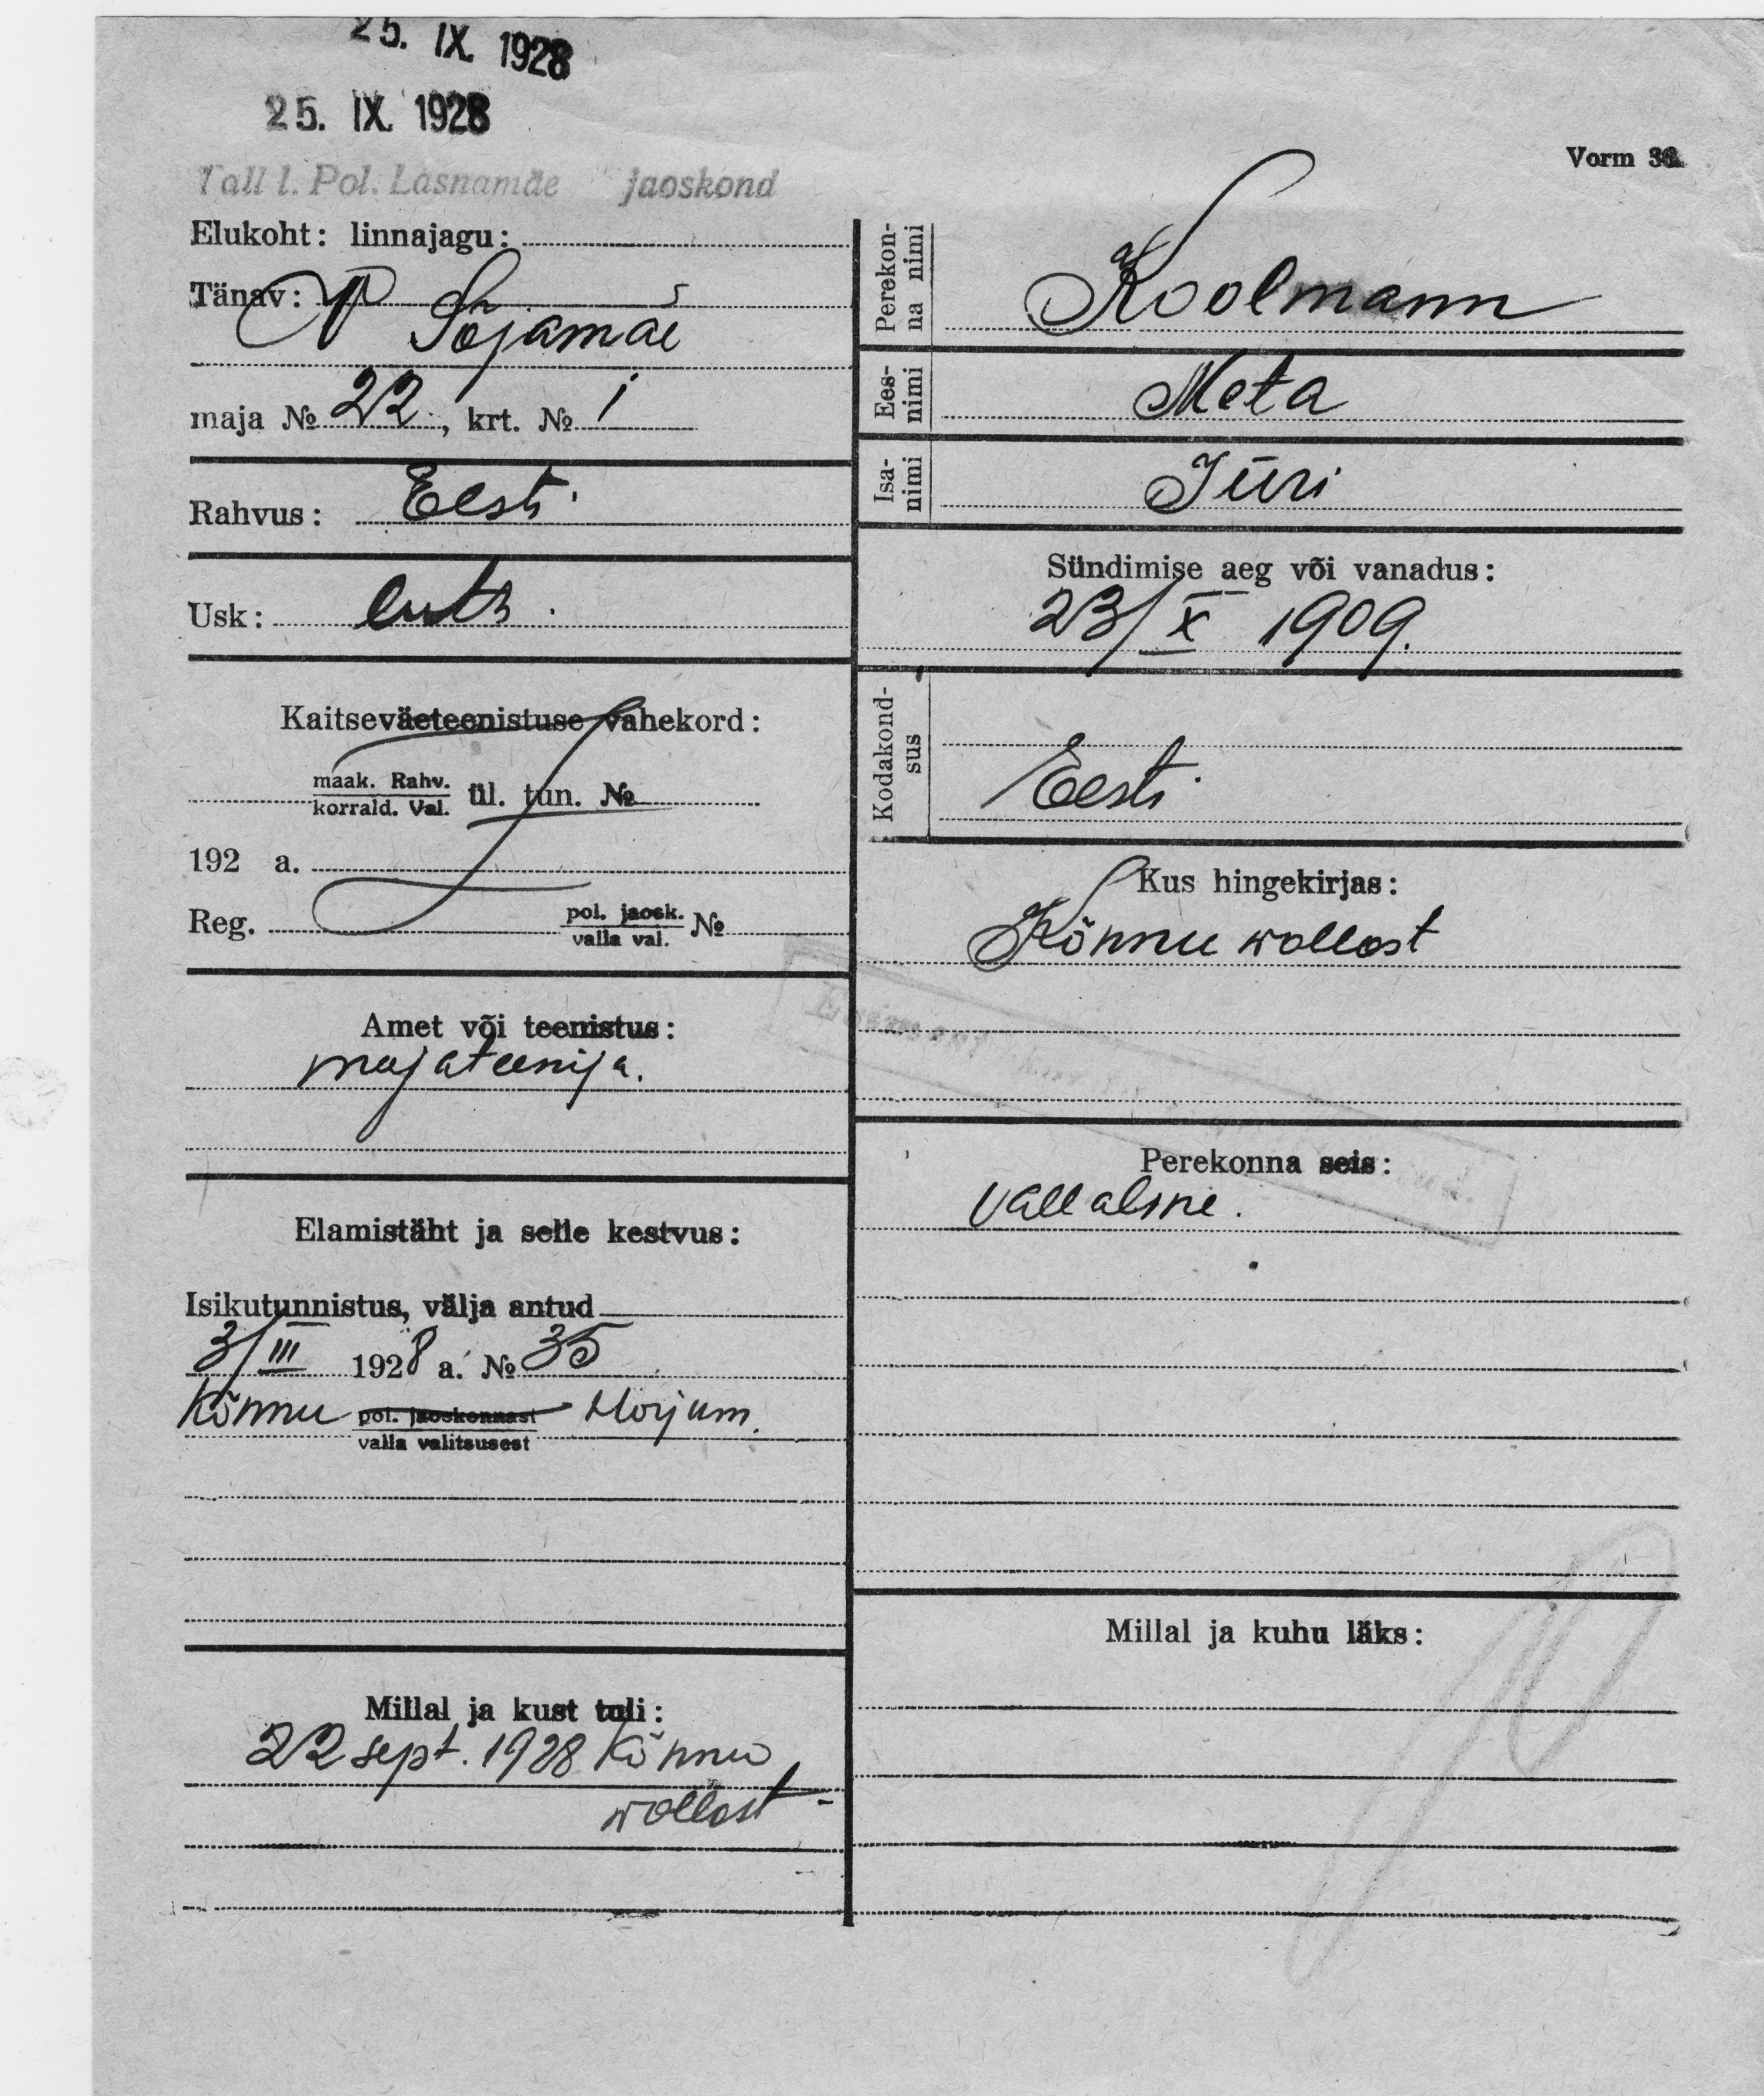 25. IX. 1928
25. IX. 1928
Tall l. Pol. Lasnamäe jaoskond
Vorm 36.
Elukoht: linnajagu:
Tänav:
V Sõjamäe
maja № 22, krt. № 1
Rahvus: Eesti
Usk: luts.
Kaitseväeteenistuse vahekord:
maak. Rahv.
korrald. Val. ül. tun. №
192 a.
Reg. pol. jaosk.
valla val. №
Amet või teenistus:
majateenija.
Elamistäht ja selle kestvus:
Isikutunnistus, välja antud
3/III 1928 a. № 35
Kõnnu pol. jaoskonnast Harjum.
valla valitsusest
Millal ja kust tuli:
22 sept. 1928 Kõnnu
wallast
Perekon-
na nimi
Koolmann
Ees-
nimi
Meta
Isa-
nimi
Jüri
Sündimise aeg või vanadus:
23/X 1909.
Kodakond-
sus
Eesti
Kus hingekirjas:
Kõnnu wallast
Perekonna seis:
Vallaline.
Millal ja kuhu läks: